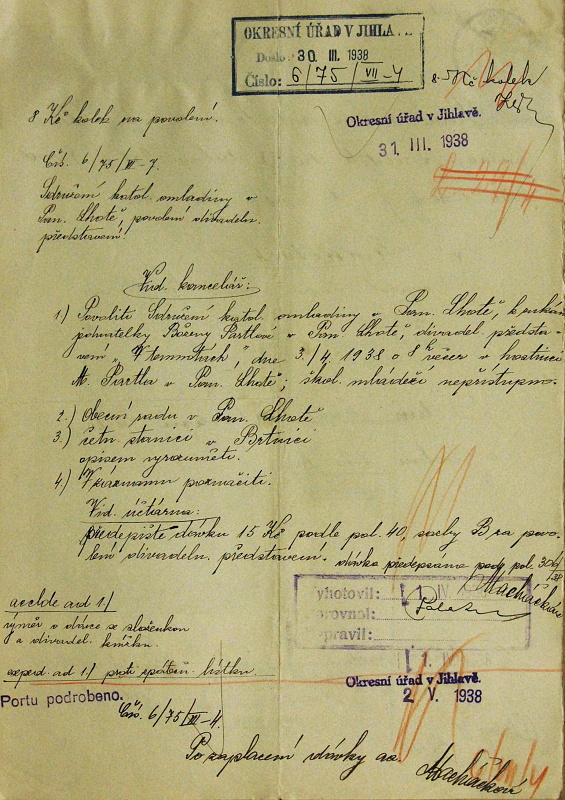 OKRESNÍ ÚŘAD V JIHLA...
Došlo: 30 III. 1938
Číslo: 6/75/VII-4
8 Kč kolek
8 Kč kolek na povolení.
Okresní úřad v Jihlavě.
31. III. 1938
Čís. 6/75/VII-4.
Sdružení katol. omladiny v
Pan. Lhotě, povolení divadeln.
představení.
Vid. kancelář:
1.) Povoliti Sdružení katol. omladiny v Pan. Lhotě, k rukám
Boženy Partlové v Pan. Lhotě, divadel. předsta-
vení „V temnotách", dne 3./4. 1938 o 8h večer v hostinci
M. Partla v Pan. Lhotě; škol. mládeži nepřístupno.
2.) Obecní radu v Pan. Lhotě
3.) četn. stanici v Brtnici
opisem vyrozuměti.
4.) V záznamu poznačiti.
Vid. účtárna:
předepište dávku 15 Kč podle pol. 40, sazby B za povo-
lení divadeln. představení. dávka předepsána pod pol. 306/38
Macháčková
yhotovil: 1. IV.
orovnal:
pravil:
1.
ad 1./
výměr o dávce se složenkou
a divadel. knížku.
exped. ad 1./ proti zpáteč. lístku.
Okresní úřad v Jihlavě.
2. V. 1938
Portu podrobeno.
Čís. 6/75/VII-4.
Po zaplacení dávky aa.
Macháčková